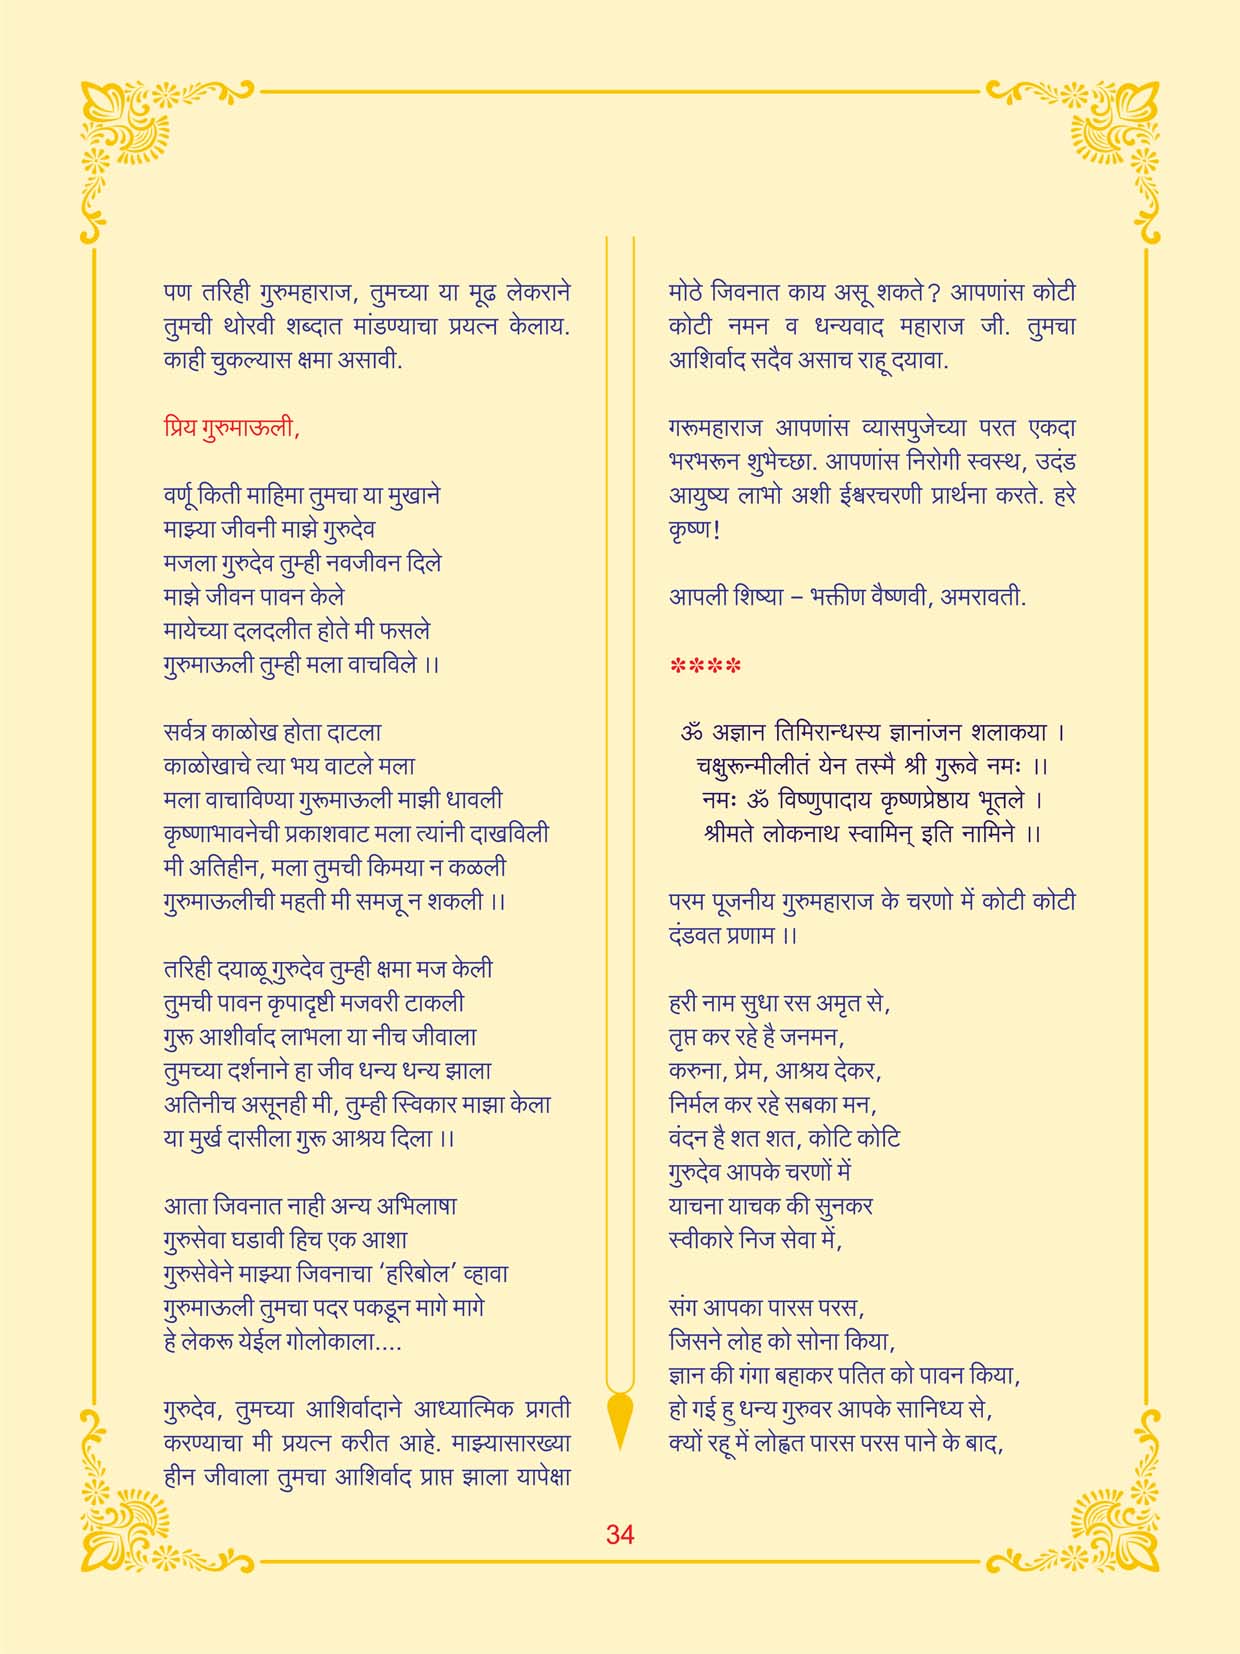 पण तरिही गुरुमहाराज, तुमच्या या मूढ लेकराने
तुमची थोरवी शब्दात मांडण्याचा प्रयत्न केलाय.
काही चुकल्यास क्षमा असावी.
प्रिय गुरुमाऊली,
वर्णू किती माहिमा तुमचा या मुखाने
माझ्या जीवनी माझे गुरुदेव
मजला गुरुदेव तुम्ही नवजीवन दिले
माझे जीवन पावन केले
मायेच्या दलदलीत होते मी फसले
गुरुमाऊली तुम्ही मला वाचविले ।।
सर्वत्र काळोख होता दाटला
काळोखाचे त्या भय वाटले मला
मला वाचाविण्या गुरूमाऊली माझी धावली
कृष्णाभावनेची प्रकाशवाट मला त्यांनी दाखविली
मी अतिहीन, मला तुमची किमया न कळली
गुरुमाऊलीची महती मी समजू न शकली ।।
तरिही दयाळू गुरुदेव तुम्ही क्षमा मज केली
तुमची पावन कृपादृष्टी मजवरी टाकली
गुरू आशीर्वाद लाभला या नीच जीवाला
तुमच्या दर्शनाने हा जीव धन्य धन्य झाला
अतिनीच असूनही मी, तुम्ही स्विकार माझा केला
या मुर्ख दासीला गुरू आश्रय दिला ।।
आता जिवनात नाही अन्य अभिलाषा
गुरुसेवा घडावी हिच एक आशा
गुरुसेवेने माझ्या जिवनाचा ‘हरिबोल’ व्हावा
गुरुमाऊली तुमचा पदर पकडून मागे मागे
हे लेकरू येईल गोलोकाला....
गुरुदेव, तुमच्या आशिर्वादाने आध्यात्मिक प्रगती
करण्याचा मी प्रयत्न करीत आहे. माझ्यासारख्या
हीन जीवाला तुमचा आशिर्वाद प्राप्त झाला यापेक्षा
मोठे जिवनात काय असू शकते? आपणांस कोटी
कोटी नमन व धन्यवाद महाराज जी. तुमचा
आशिर्वाद सदैव असाच राहू दयावा.
गरूमहाराज आपणांस व्यासपुजेच्या परत एकदा
भरभरून शुभेच्छा. आपणांस निरोगी स्वस्थ, उदंड
आयुष्य लाभो अशी ईश्वरचरणी प्रार्थना करते. हरे
कृष्ण!
आपली शिष्या – भक्तीण वैष्णवी, अमरावती.
****
ॐ अज्ञान तिमिरान्धस्य ज्ञानांजन शलाकया ।
चक्षुरून्मीलीतं येन तस्मै श्री गुरूवे नमः ।।
नमः ॐ विष्णुपादाय कृष्णप्रेष्ठाय भूतले ।
श्रीमते लोकनाथ स्वामिन् इति नामिने ।।
परम पूजनीय गुरुमहाराज के चरणो में कोटी कोटी
दंडवत प्रणाम ।।
हरी नाम सुधा रस अमृत से,
तृप्त कर रहे है जनमन,
करुना, प्रेम, आश्रय देकर,
निर्मल कर रहे सबका मन,
वंदन है शत शत, कोटि कोटि
गुरुदेव आपके चरणों में
याचना याचक की सुनकर
स्वीकारे निज सेवा में,
संग आपका पारस परस,
जिसने लोह को सोना किया,
ज्ञान की गंगा बहाकर पतित को पावन किया,
हो गई हु धन्य गुरुवर आपके सानिध्य से,
क्यों रहू में लोह्वत पारस परस पाने के बाद,
34